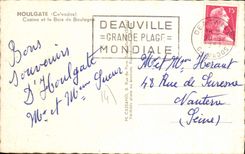 HOULGATE - (Calvados)
Casino et le Bois de Boulogne
DEAUVILLE
GRANDE PLAGE
MONDIALE
15
Bons
Souvenirs
D'Houlgate
Mr et Mme
Mr et Mme
48 Rue de Suresne
Nanterre
(Seine)